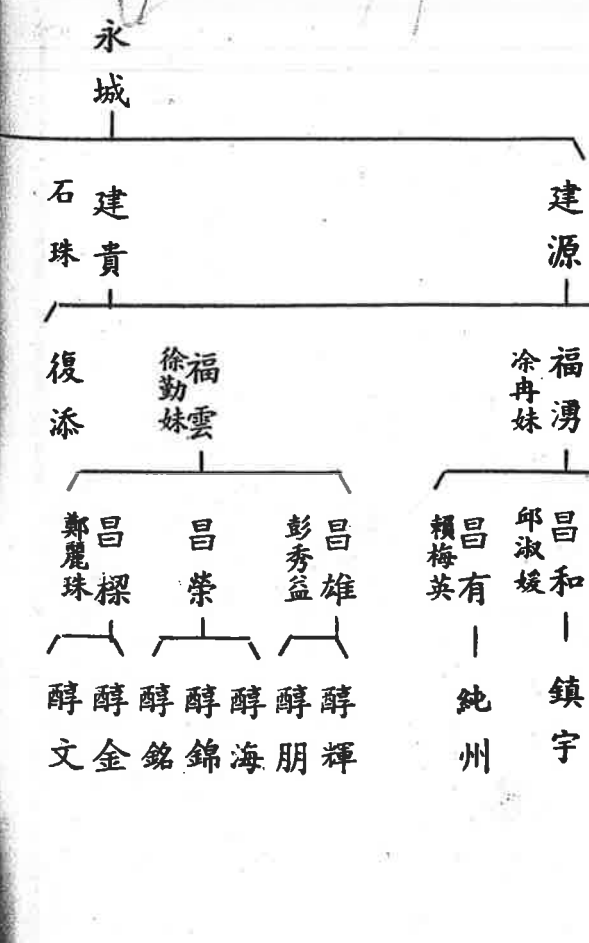 永城
建源
建貴
石珠
福湧
凃冉妹
福雲
徐勤妹
復添
昌和
邱淑媛
昌有
賴梅英
昌雄
彭秀益
昌榮
昌樑
鄭麗珠
鎮宇
純州
醇輝
醇朋
醇海
醇錦
醇銘
醇金
醇文